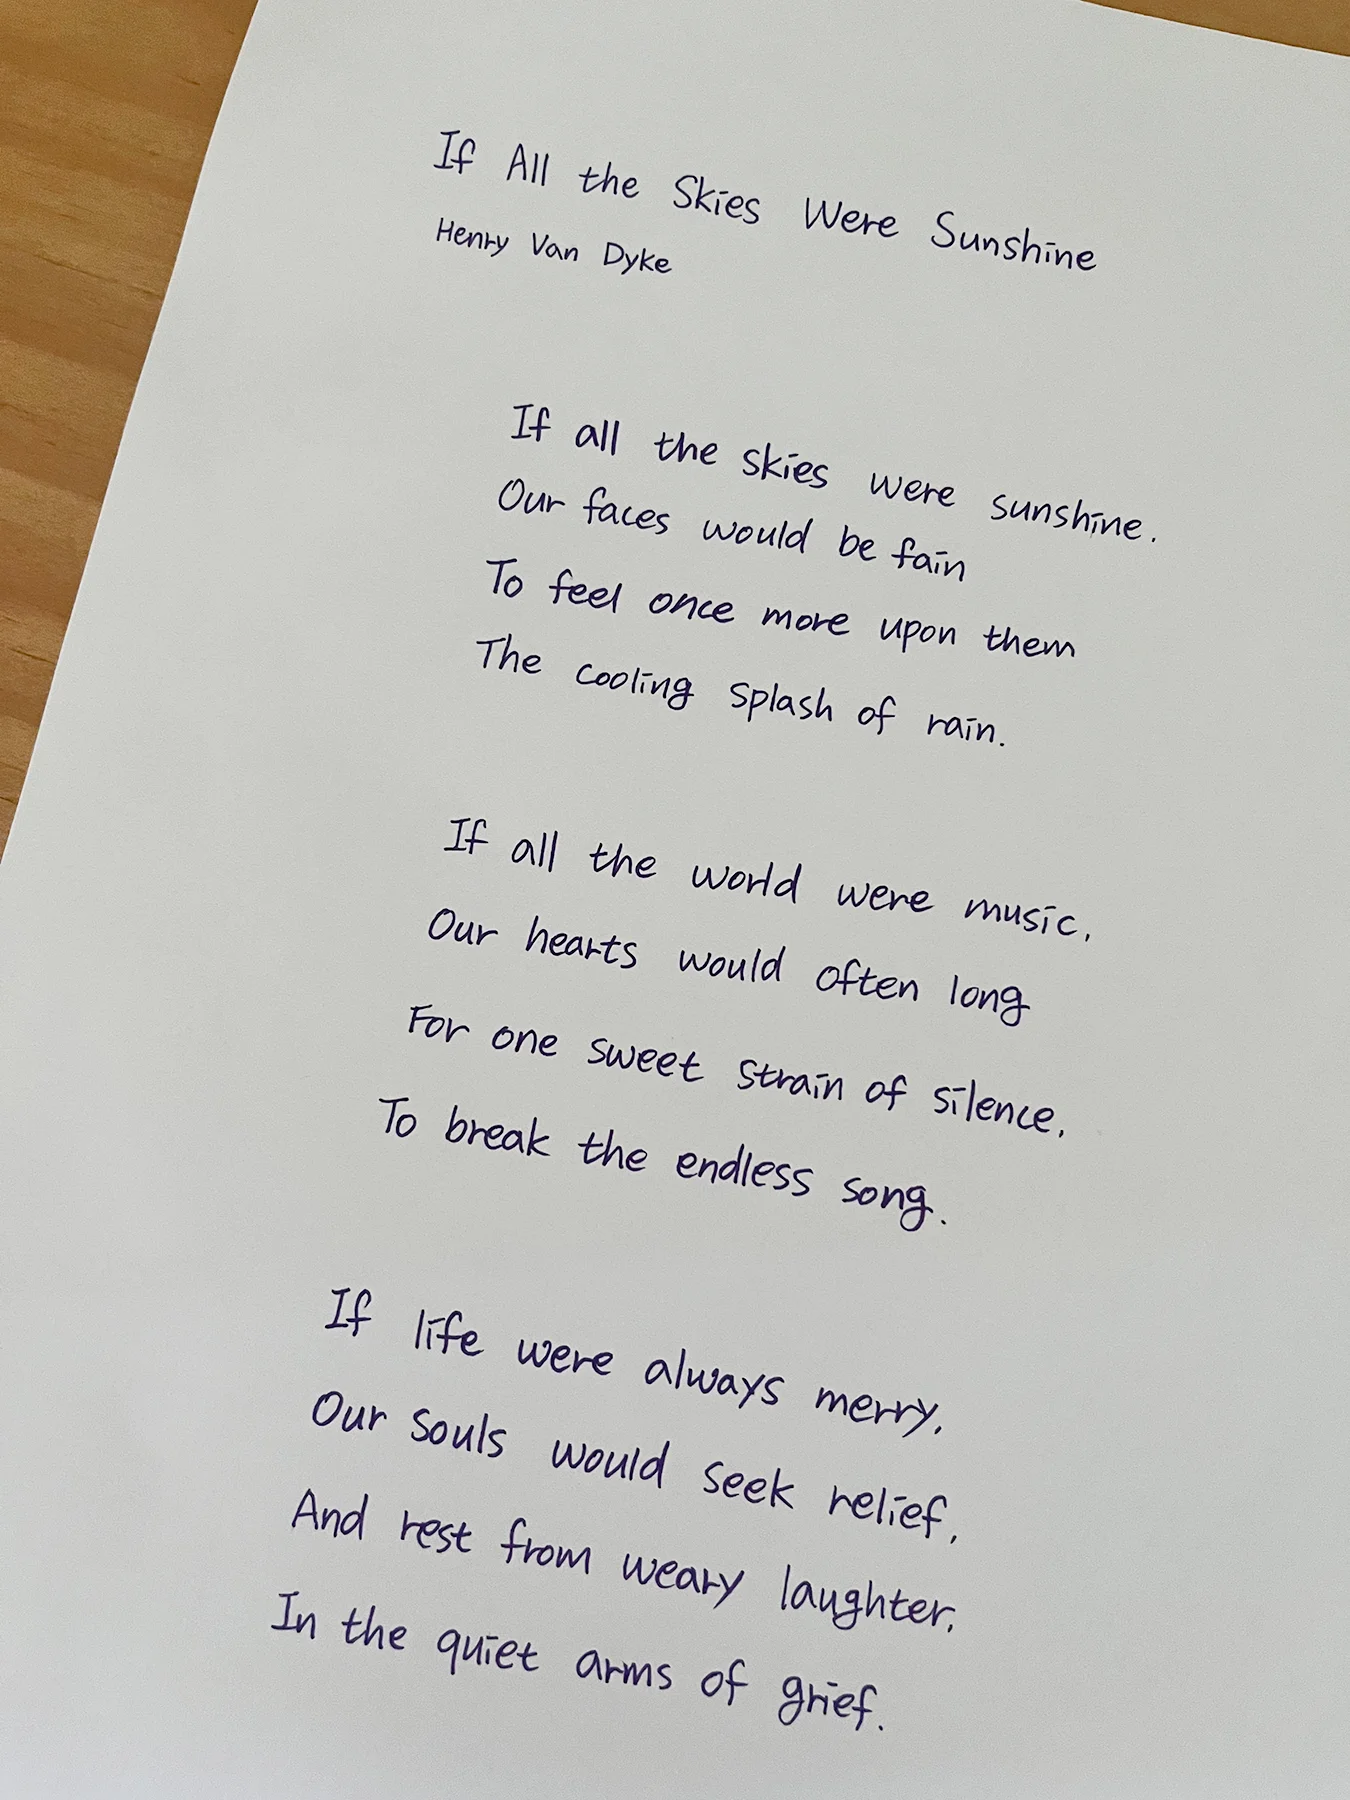 If All the Skies Were Sunshine
Henry Van Dyke
If all the skies were sunshine.
Our faces would be fain
To feel once more upon them
The cooling splash of rain.
If all the world were music,
Our hearts would often long
For one sweet strain of silence,
To break the endless song.
If life were always merry,
Our souls would seek relief,
And rest from weary laughter,
In the quiet arms of grief.